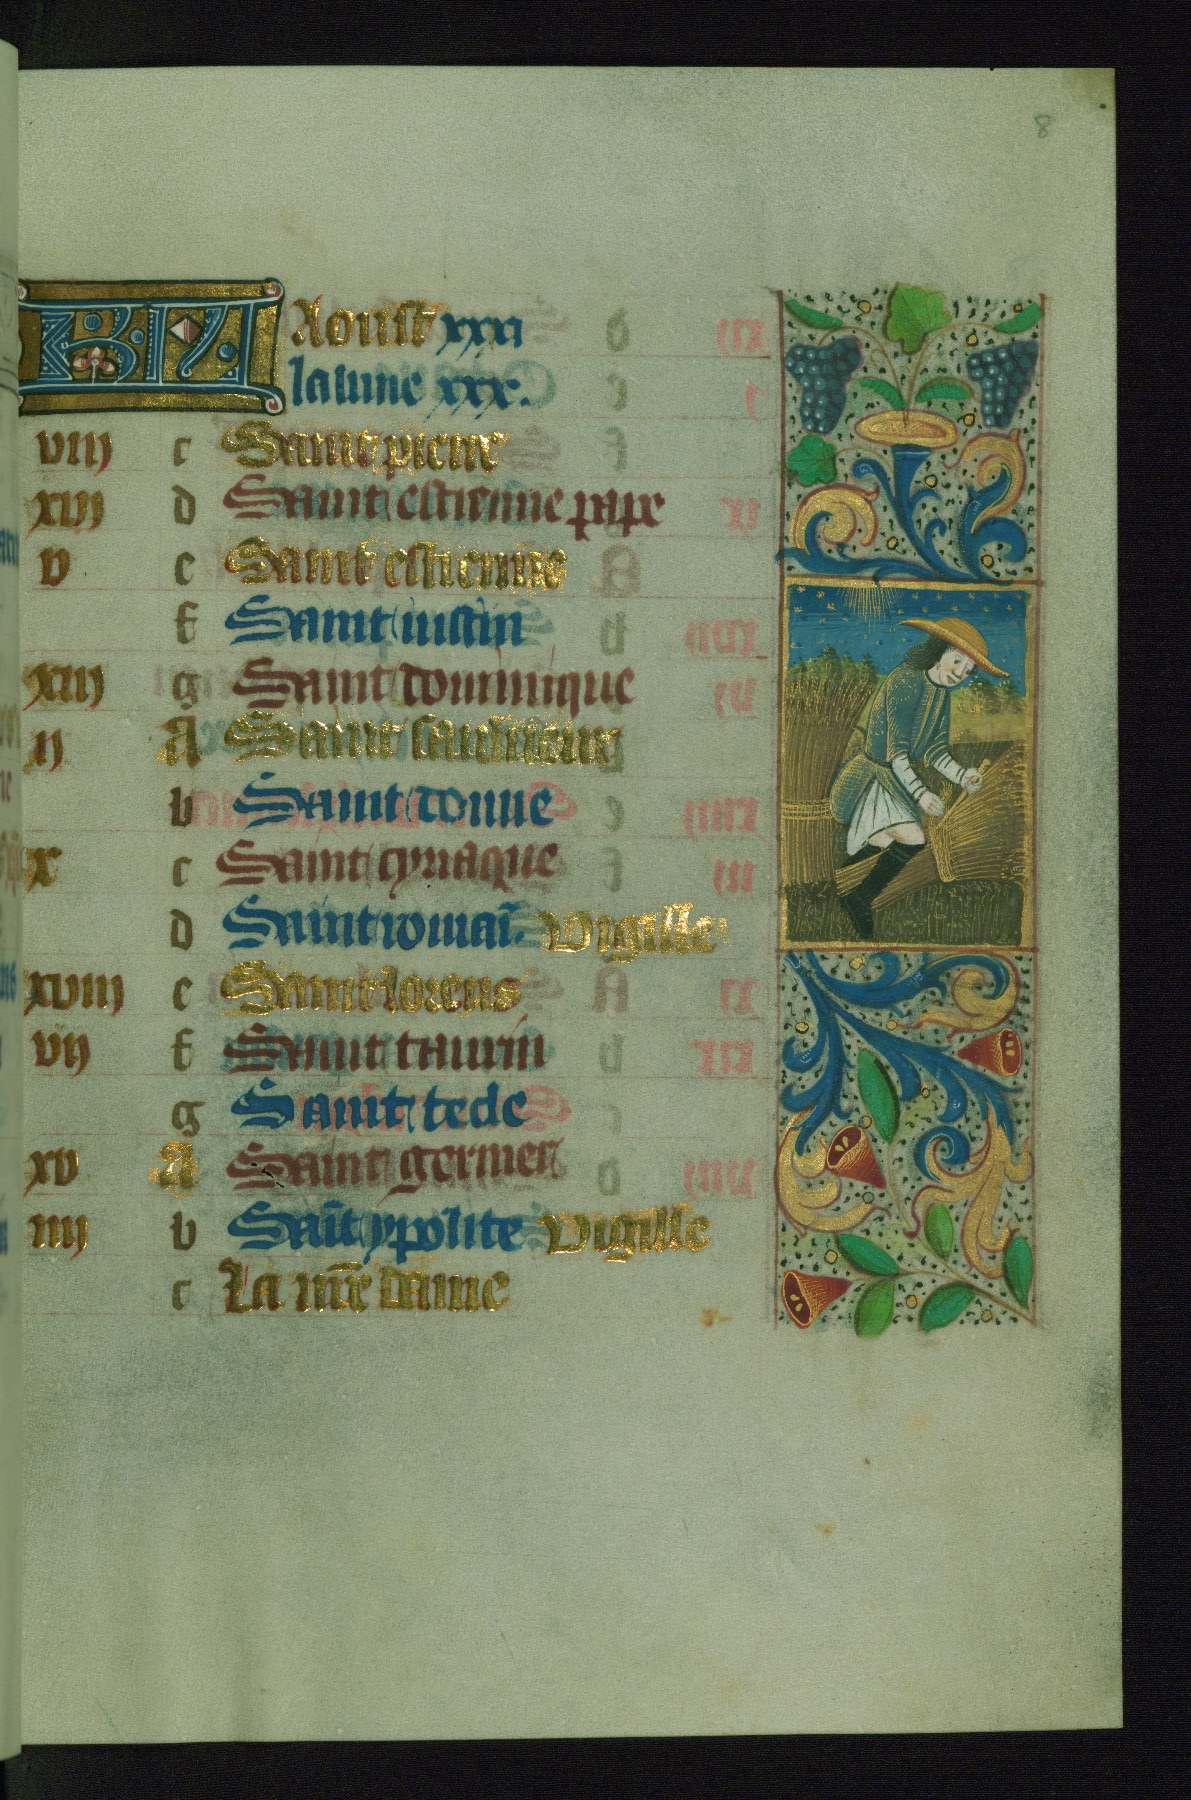 8
KL Aoust xxxi
la lune xxx.
viii c Saint pierre
xvi d Saint estienne pape
v e Saint estienne
f Saint iustin
xiii g Saint dominique
ii A Saint
b Saint donne
x c Saint cyriaque
d Saint romaī. Vigille
xviii e Saint lorens
vii f Saint taurin
g Saint tecle
xv A Saint germer
iiii b Saīt ypolite Vigille
c La mre dame